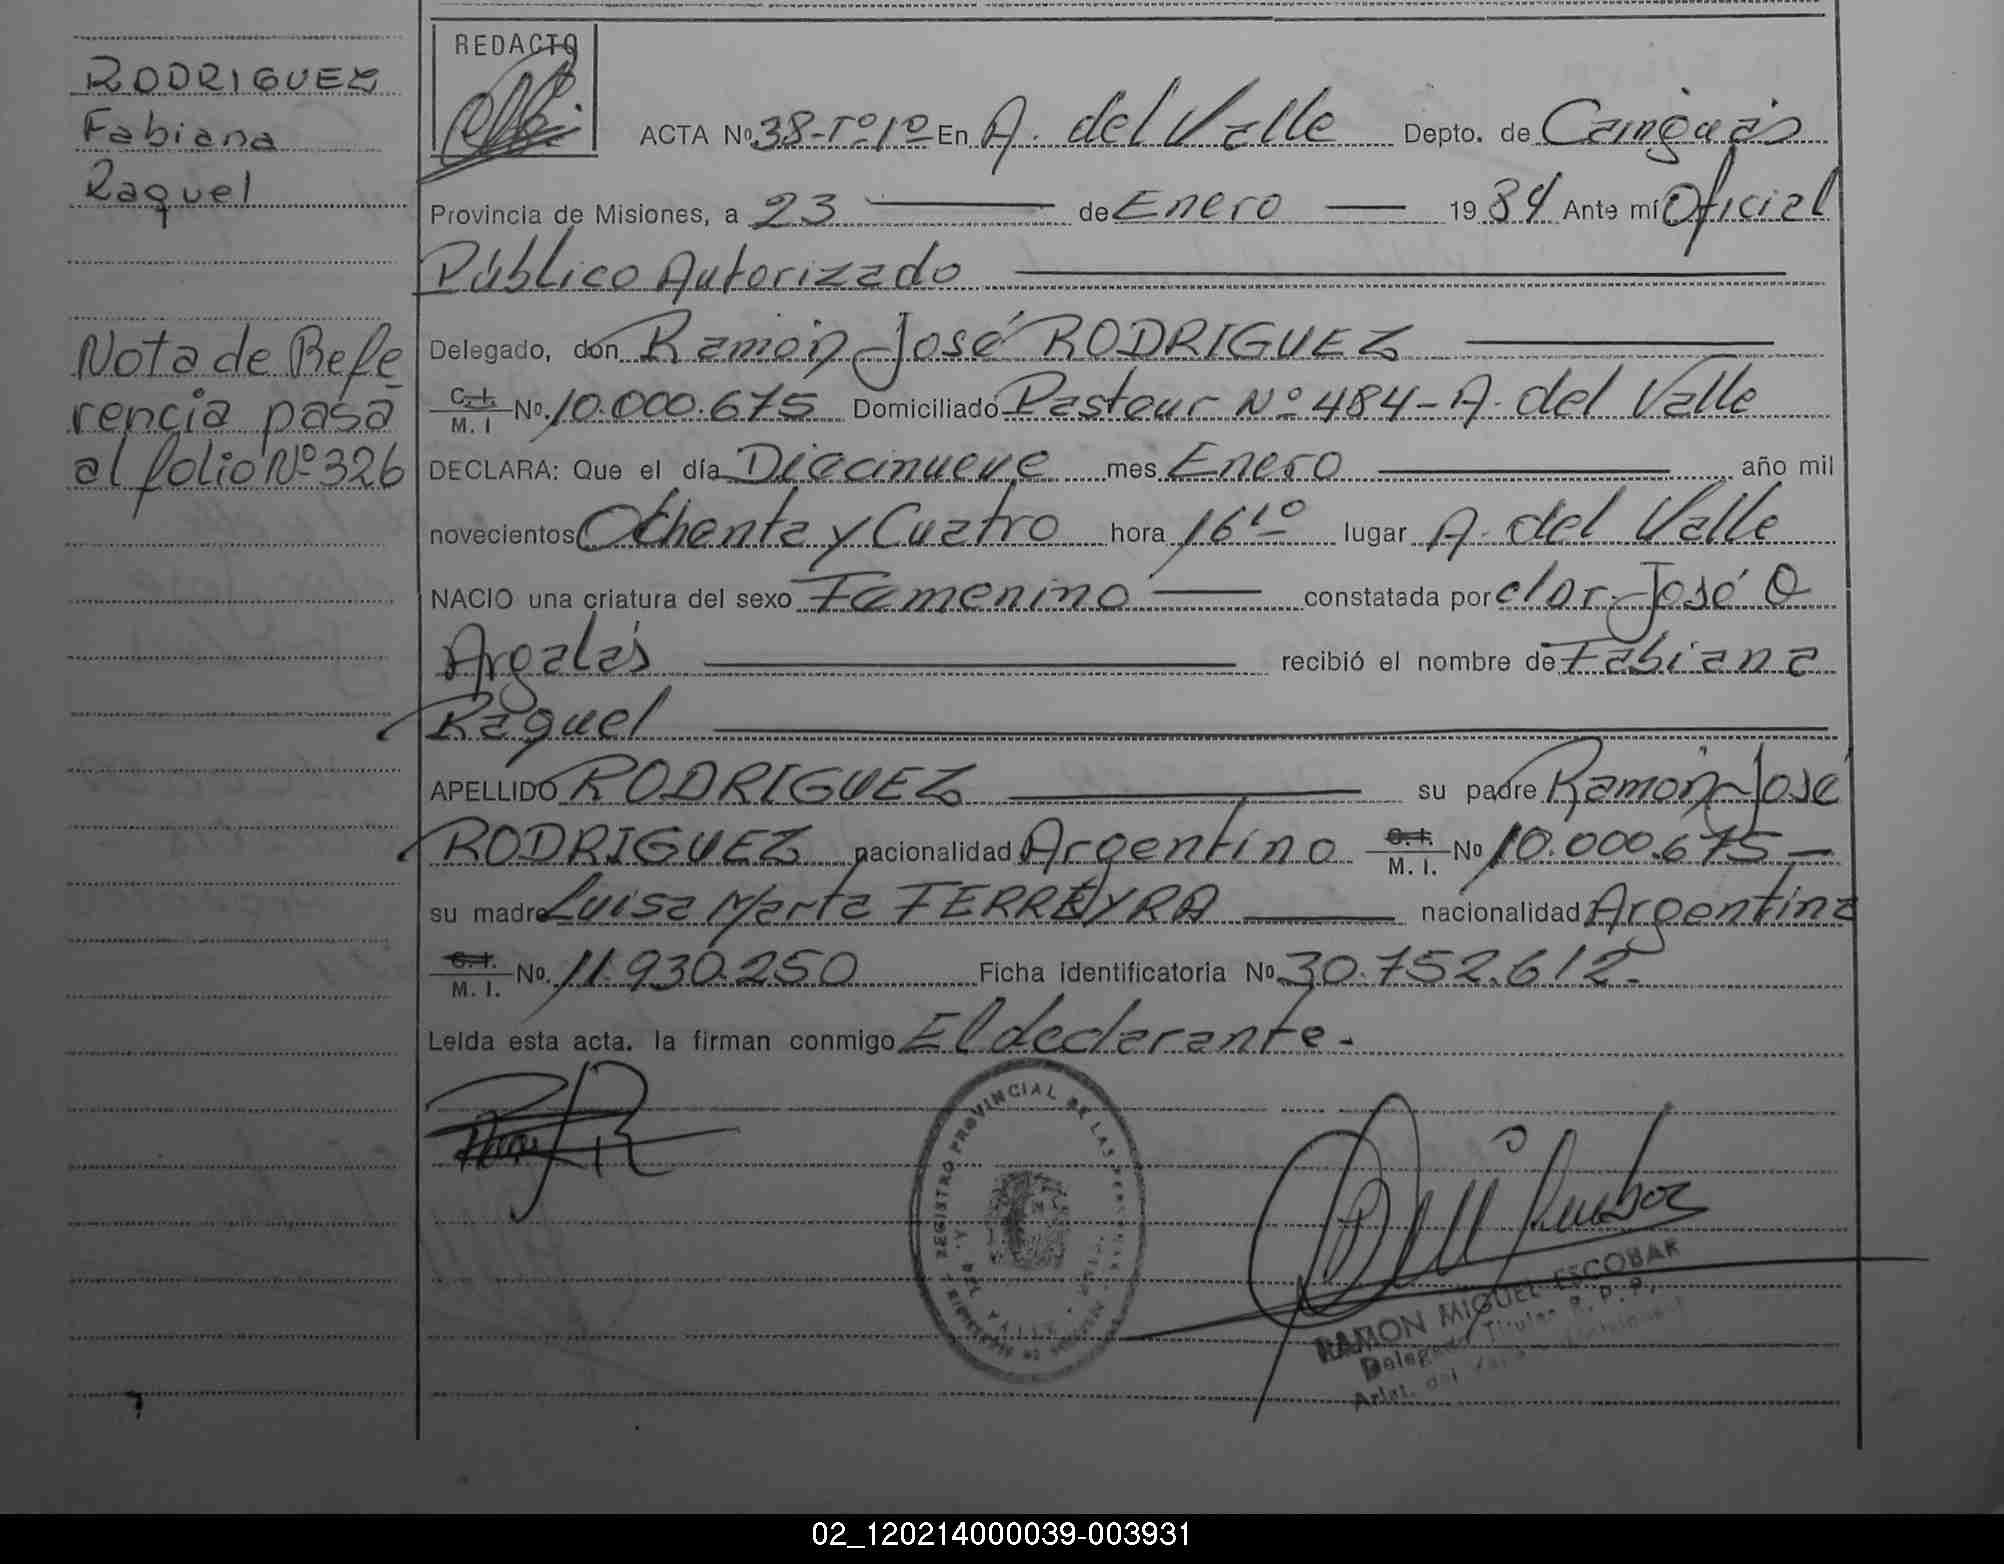 RODRIGUEZ
Fabiana
Raquel
Nota de Refe
rencia pasa
al folio Nº 326
REDACTO
ACTA Nº 38-Tº1º En A. del Valle Depto. de Cainguás
Provincia de Misiones, a 23 de Enero 1984 Ante mí Oficial
Público Autorizado
Delegado, don Ramón José RODRIGUEZ
C. I. M. I Nº. 10.000.675 Domiciliado Pasteur Nº 484 - A. del Valle
DECLARA: Que el día Diecinueve mes Enero año mil
novecientos Ochenta y Cuatro hora 16¹⁰ lugar A. del Valle
NACIO una criatura del sexo Femenino constatada por José O
Argalás recibió el nombre de Fabiana
Raquel
APELLIDO RODRIGUEZ su padre Ramón José
RODRIGUEZ nacionalidad Argentino C. I. M. I. Nº 10.000.675 -
su madre Luisa Marta FERREYRA nacionalidad Argentina
C. I. M. I. Nº. 11.930.250 Ficha identificatoria Nº 30.752.612.-
Leida esta acta. la firman conmigo El declarante.-
REGISTRO PROVINCIAL DE LAS PERSONAS
A. DEL VALLE
RAMON MIGUEL ESCOBAR
Delegado Titular R. P. P.
Arist. del Valle
02_120214000039-003931